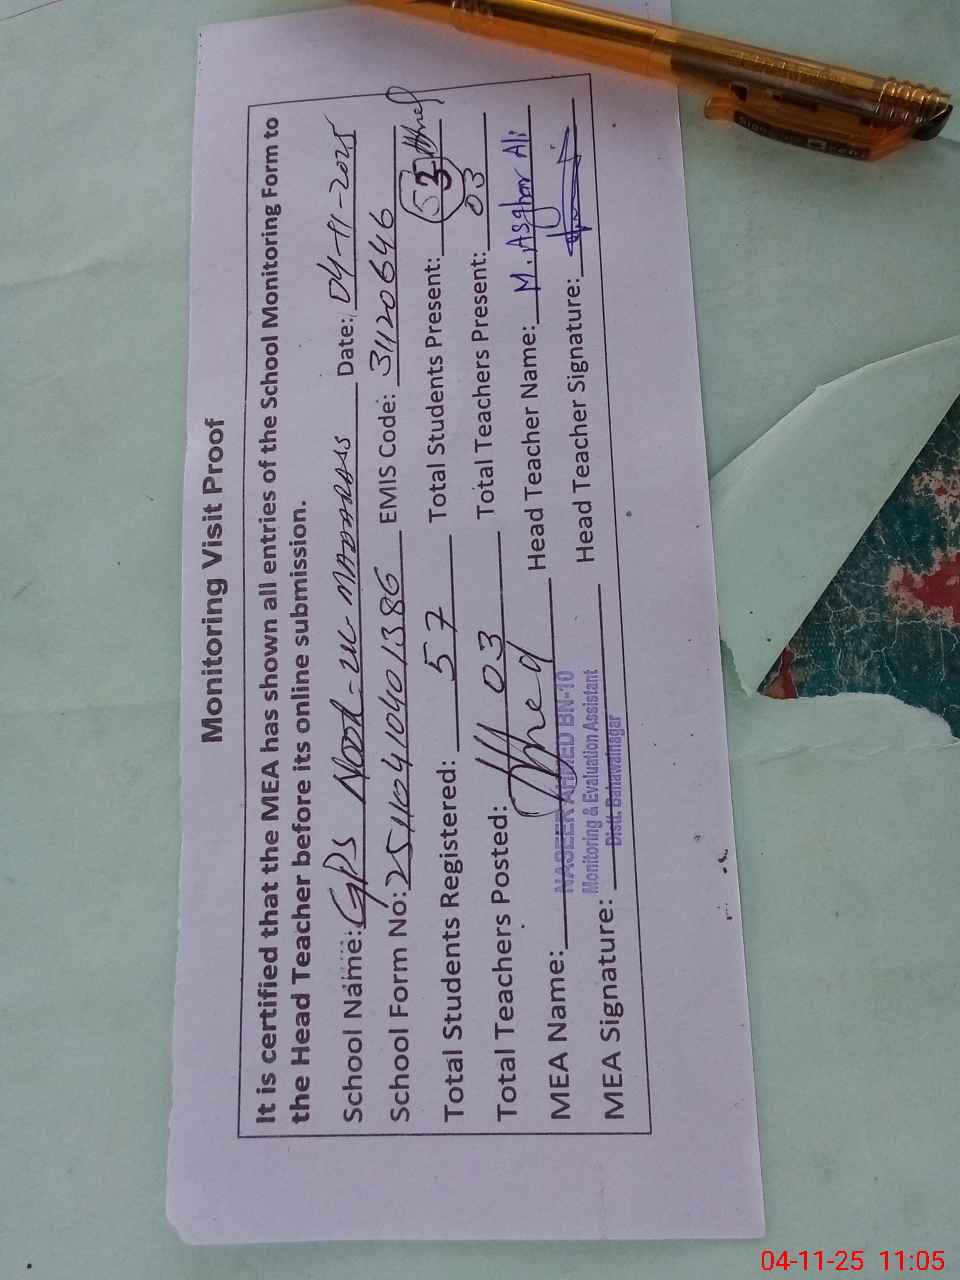 Monitoring Visit Proof
It is certified that the MEA has shown all entries of the School Monitoring Form to
the Head Teacher before its online submission.
School Name: GPS Noor-ul-MADARASS Date: 04-11-2025
School Form No: 251110410401386 EMIS Code: 31120646
Total Students Registered: 57 Total Students Present: 53
Total Teachers Posted: 03 Total Teachers Present: 03
MEA Name: NASEER AHMED BN-10 Head Teacher Name: M. Asghar Ali
Monitoring & Evaluation Assistant
MEA Signature: Distt. Bahawalnagar Head Teacher Signature:
04-11-25 11:05